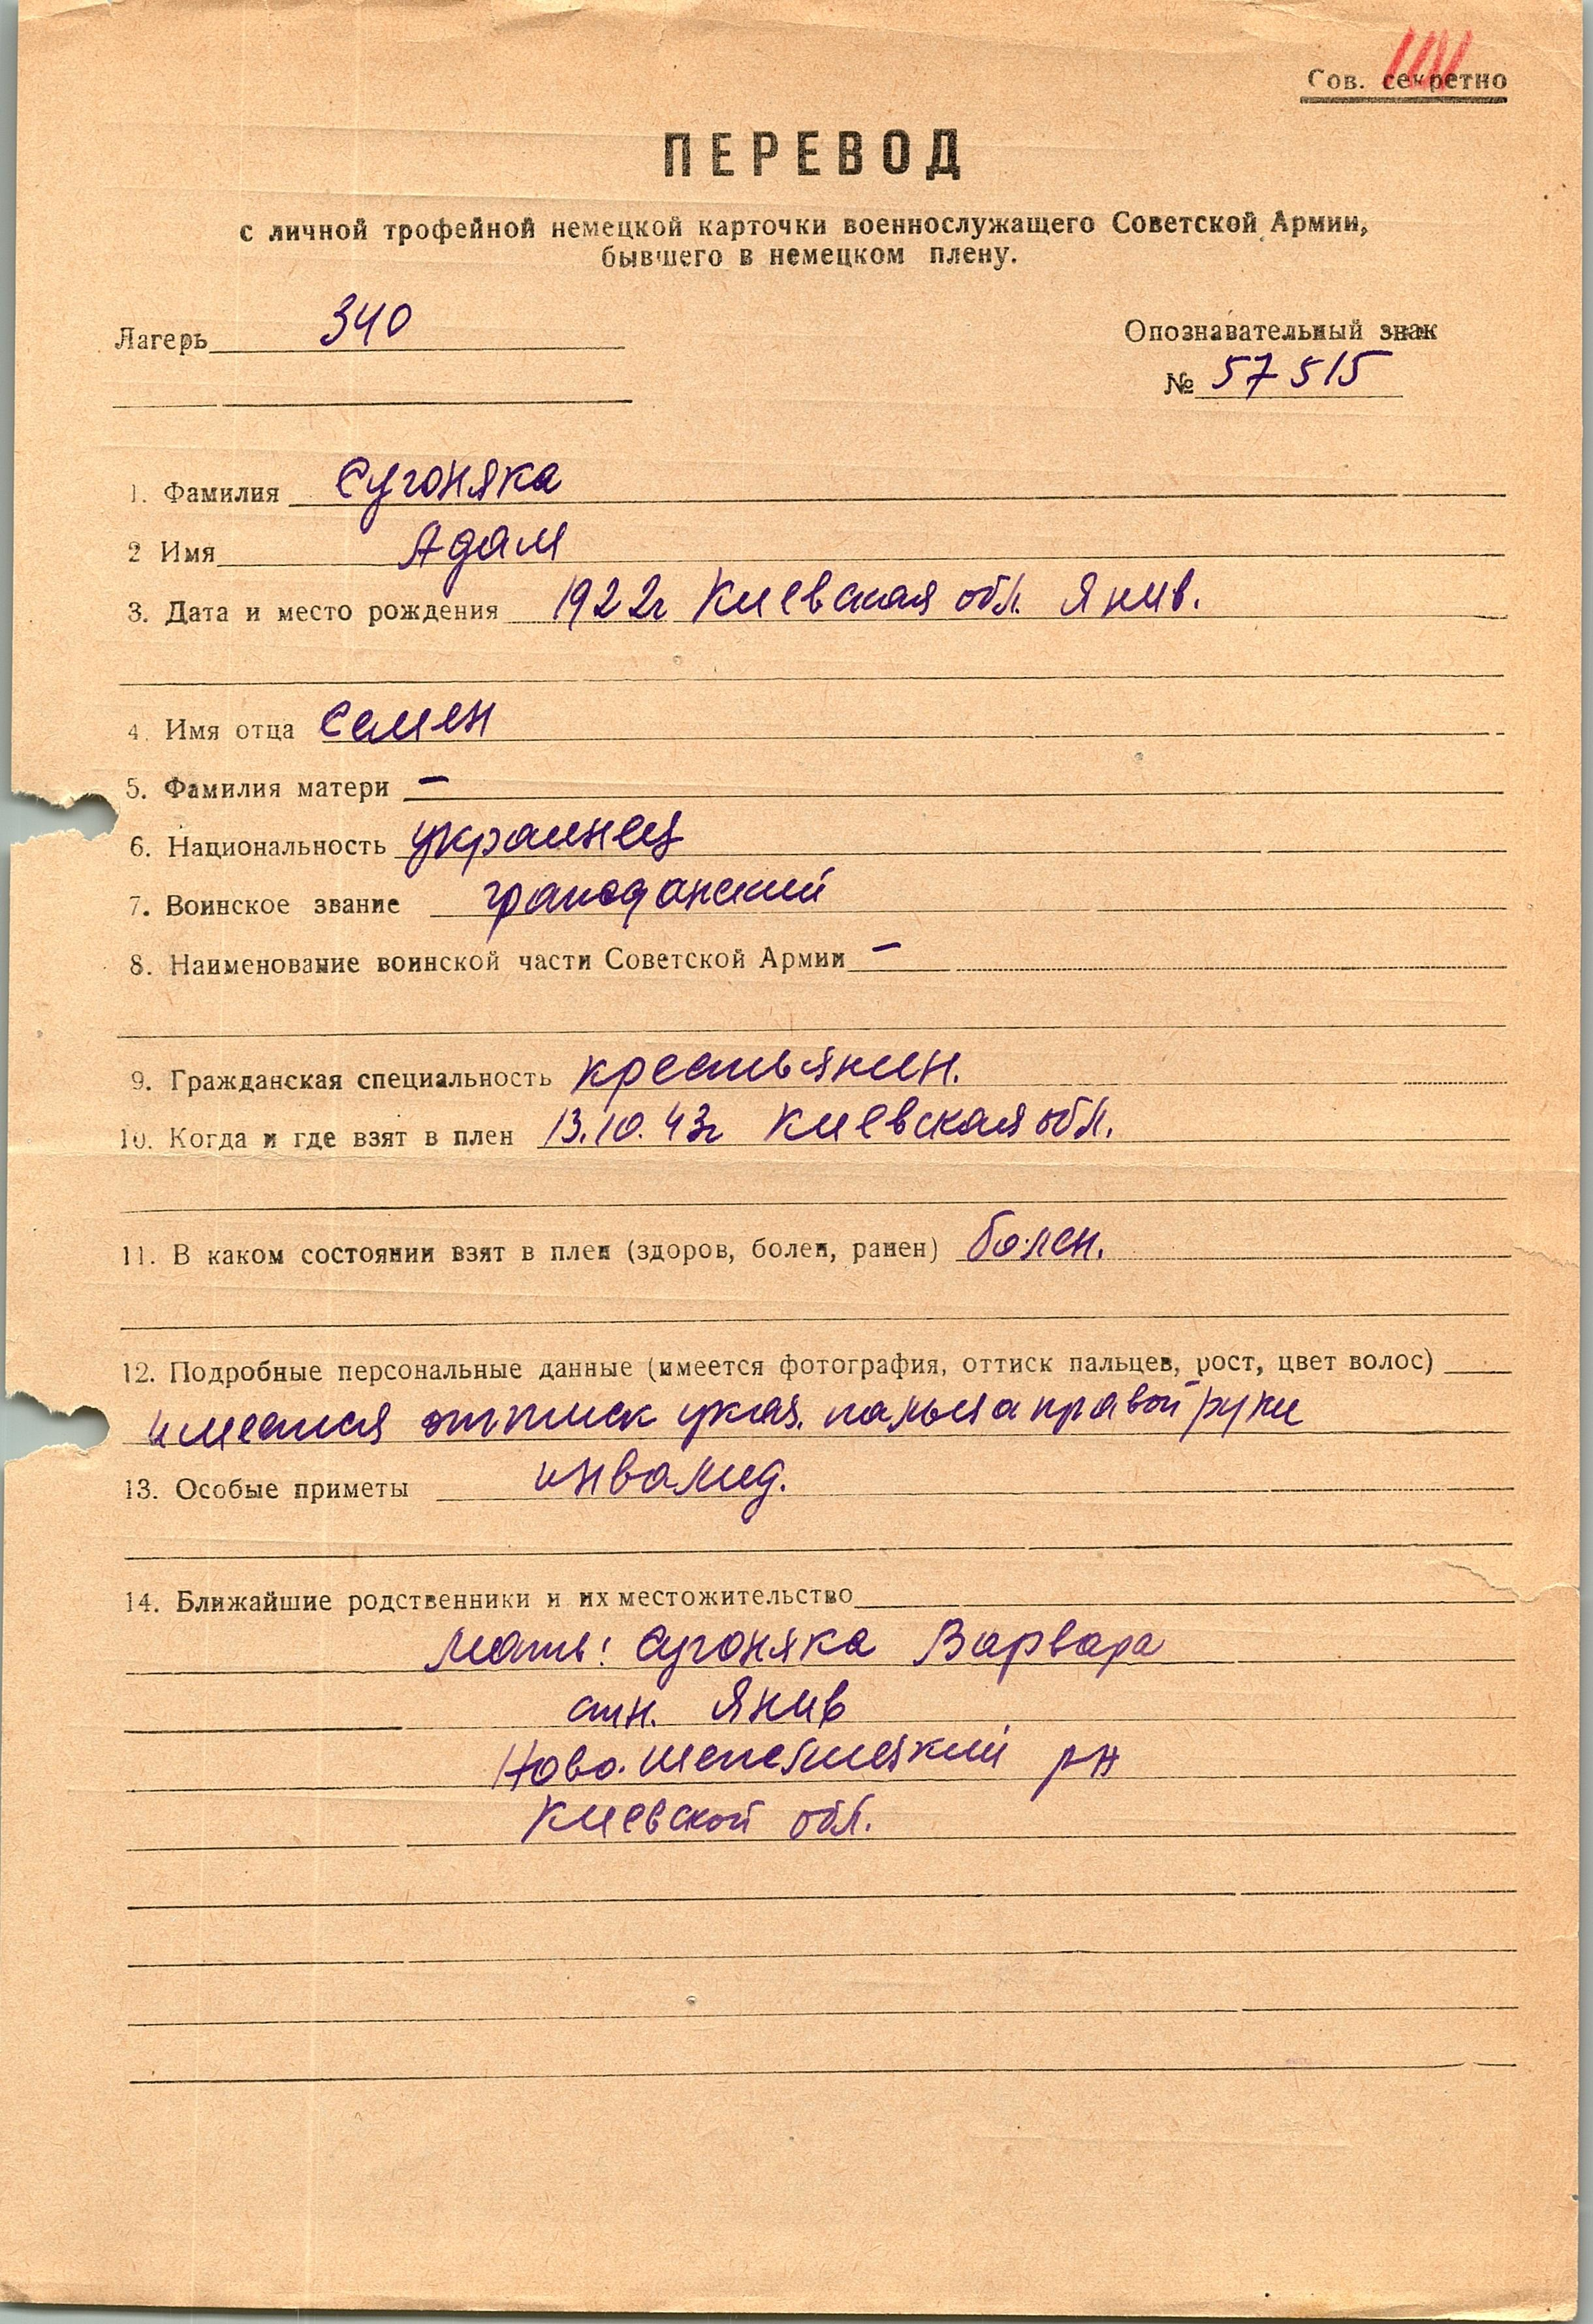 Сов. секретно
ПЕРЕВОД
с личной трофейной немецкой карточки военнослужащего Советской Армии,
бывшего в немецком плену.
Лагерь 340
Опознавательный знак
№ 57515
1. Фамилия Сугоняка
2 Имя Адам
3. Дата и место рождения 1922г Киевская обл. Янив.
4. Имя отца Семен
5. Фамилия матери —
6. Национальность украинец
7. Воинское звание гражданский
8. Наименование воинской части Советской Армии —
9. Гражданская специальность крестьянин.
10. Когда и где взят в плен 13.10.43г Киевская обл.
11. В каком состоянии взят в плен (здоров, болен, ранен) болен.
12. Подробные персональные данные (имеется фотография, оттиск пальцев, рост, цвет волос)
имеется оттиск указ. пальца правой руки
13. Особые приметы инвалид.
14. Ближайшие родственники и их местожительство
Мать: Сугоняка Варвара
стн. Янив
Ново-Шепелицкий рн
Киевской обл.